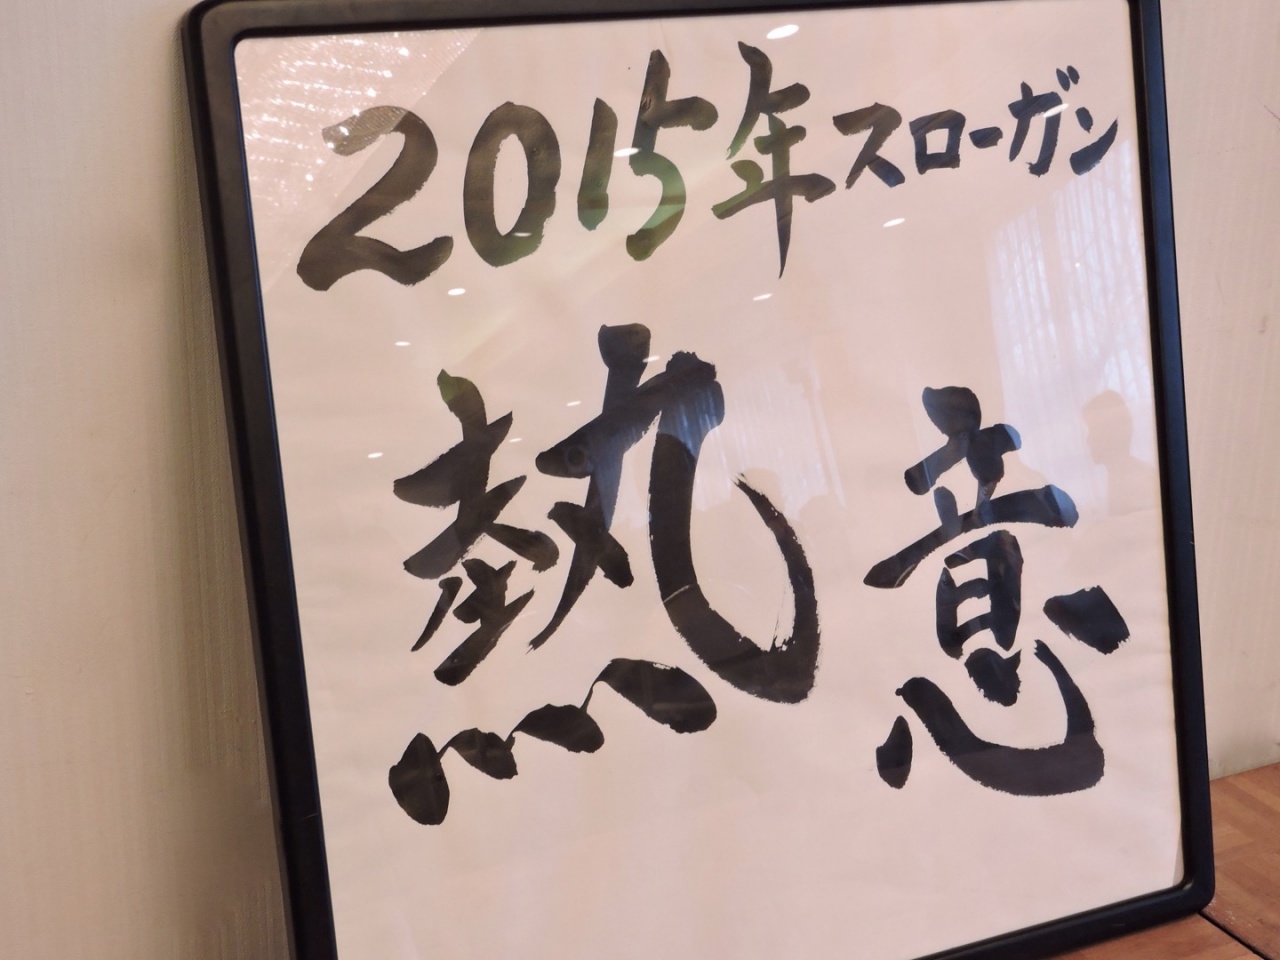 2015年スローガン
熱意